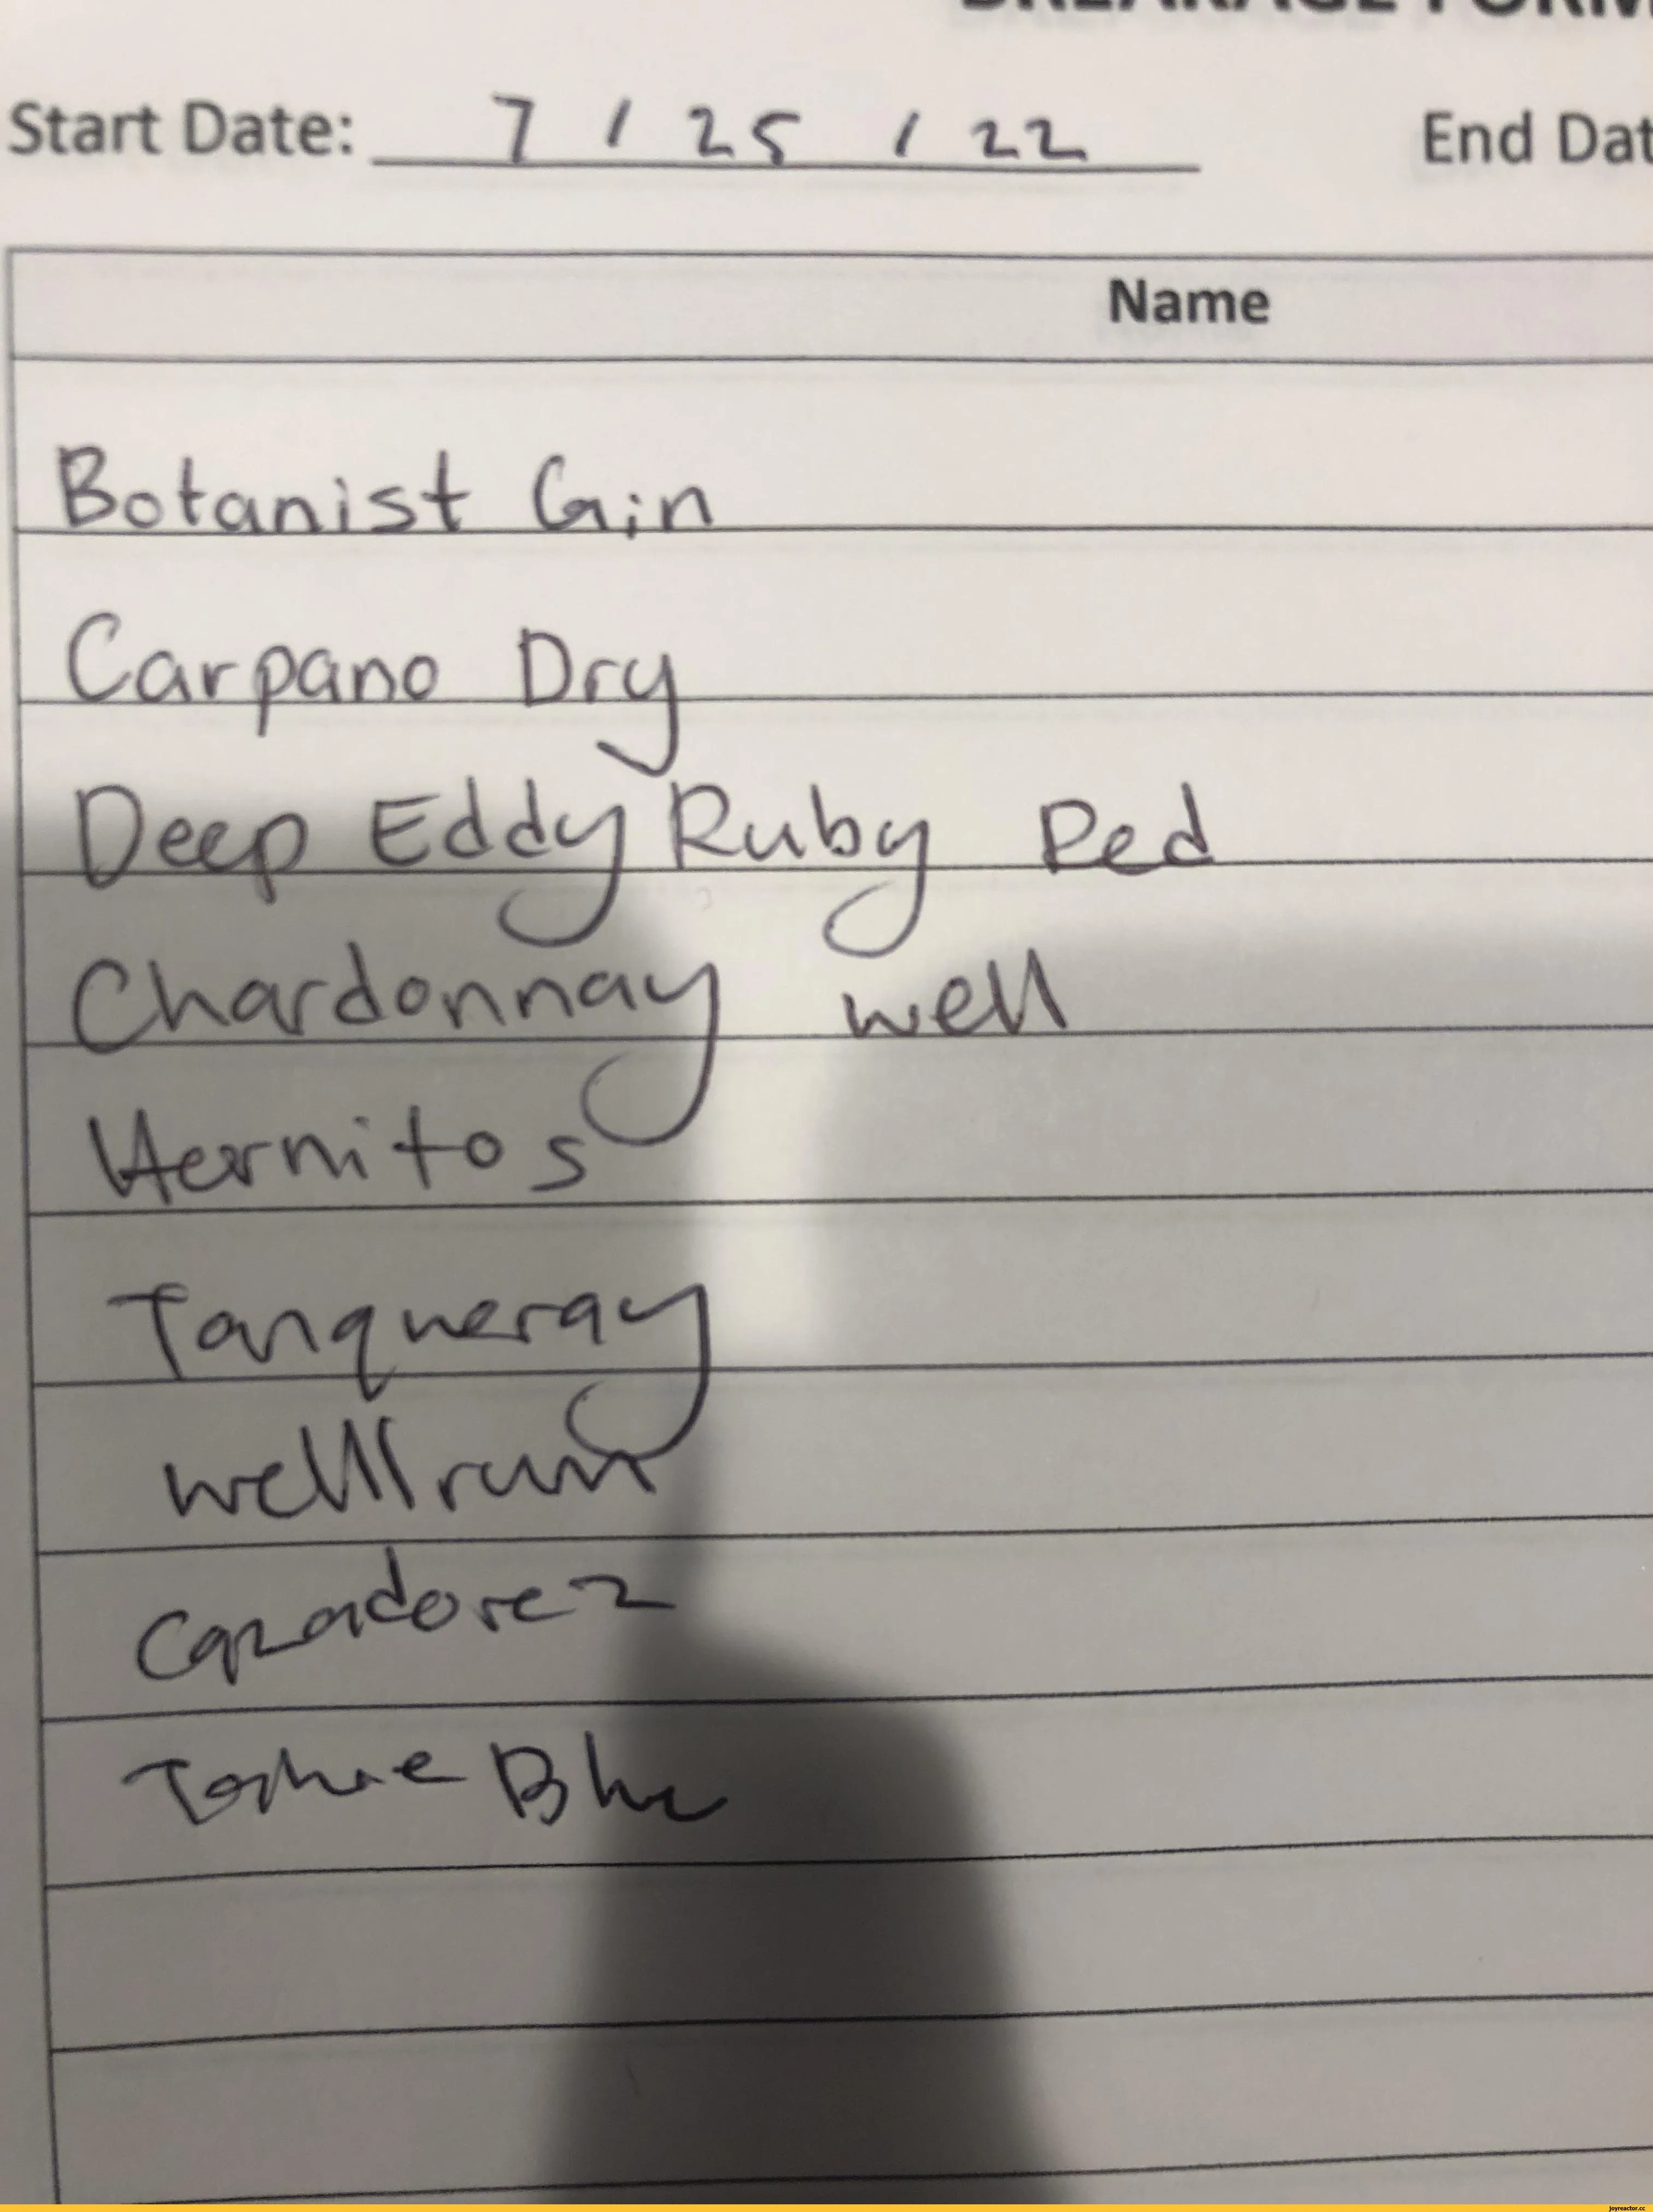 BREAKAGE FORM
Start Date: 7 / 25 / 22 End Dat
Name
Botanist Gin
Carpano Dry
Deep Eddy Ruby Red
Chardonnay well
Hornitos
Tanqueray
well rum
Cazadorez
joyreactor.cc